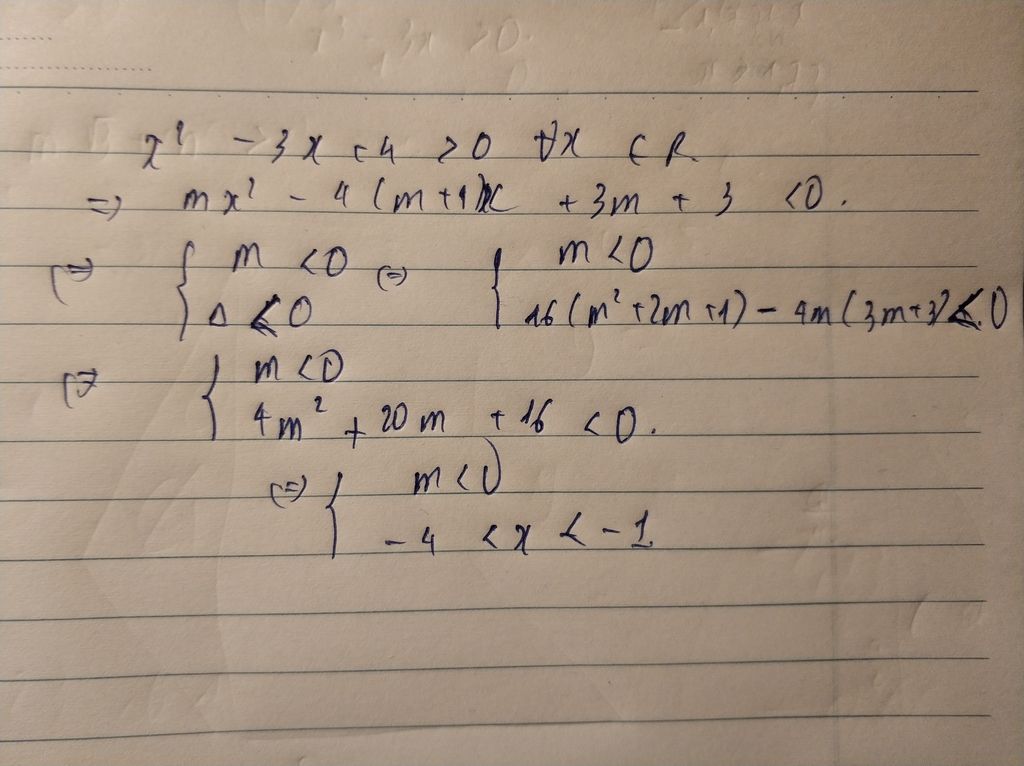 x² - 3x + 4 > 0 ∀x ∈ R
=> mx² - 4(m+1)x + 3m + 3 < 0.
(=) { m < 0 Δ < 0 (=) { m < 0 16(m² + 2m + 1) - 4m(3m+3) < 0
(=) { m < 0 4m² + 20m + 16 < 0.
(=) { m < 0 -4 < x < -1